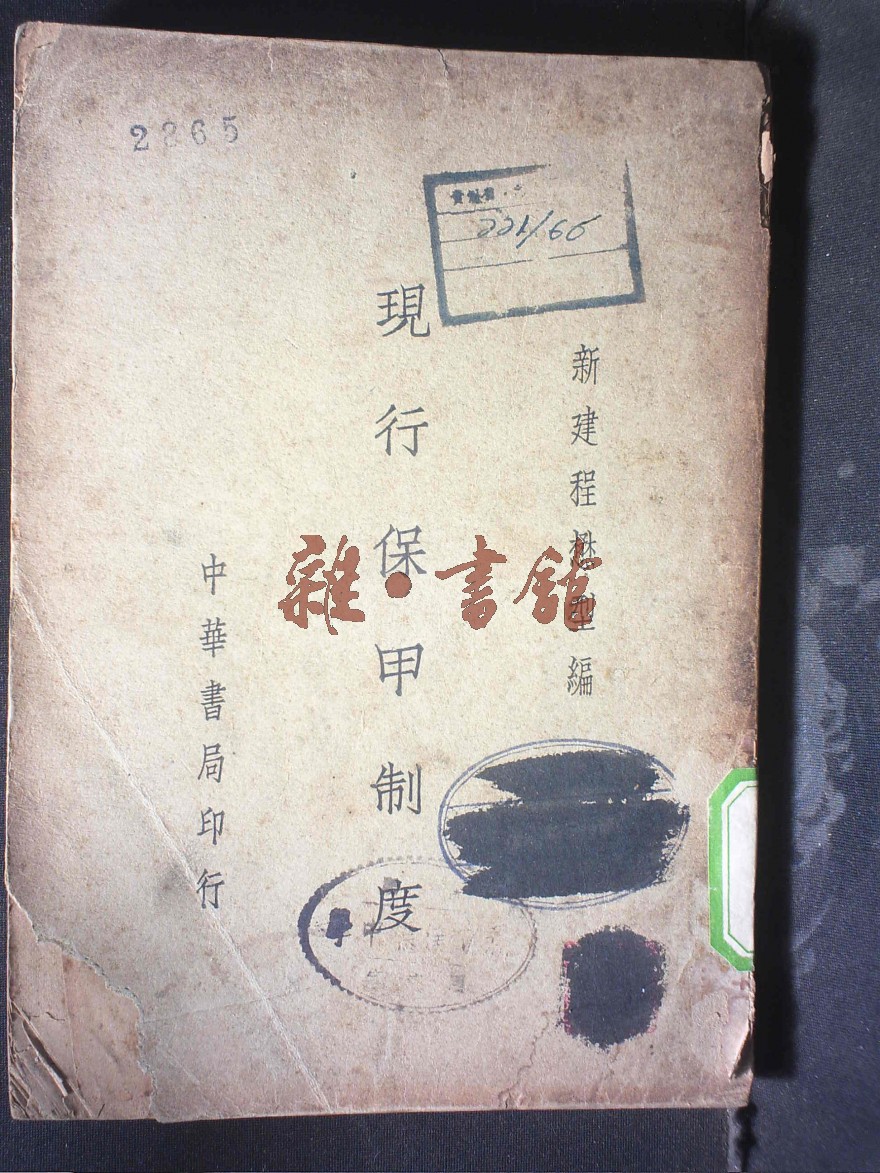 2265
221/66
新建程懋型編
現行保甲制度
中華書局印行
雜·書館